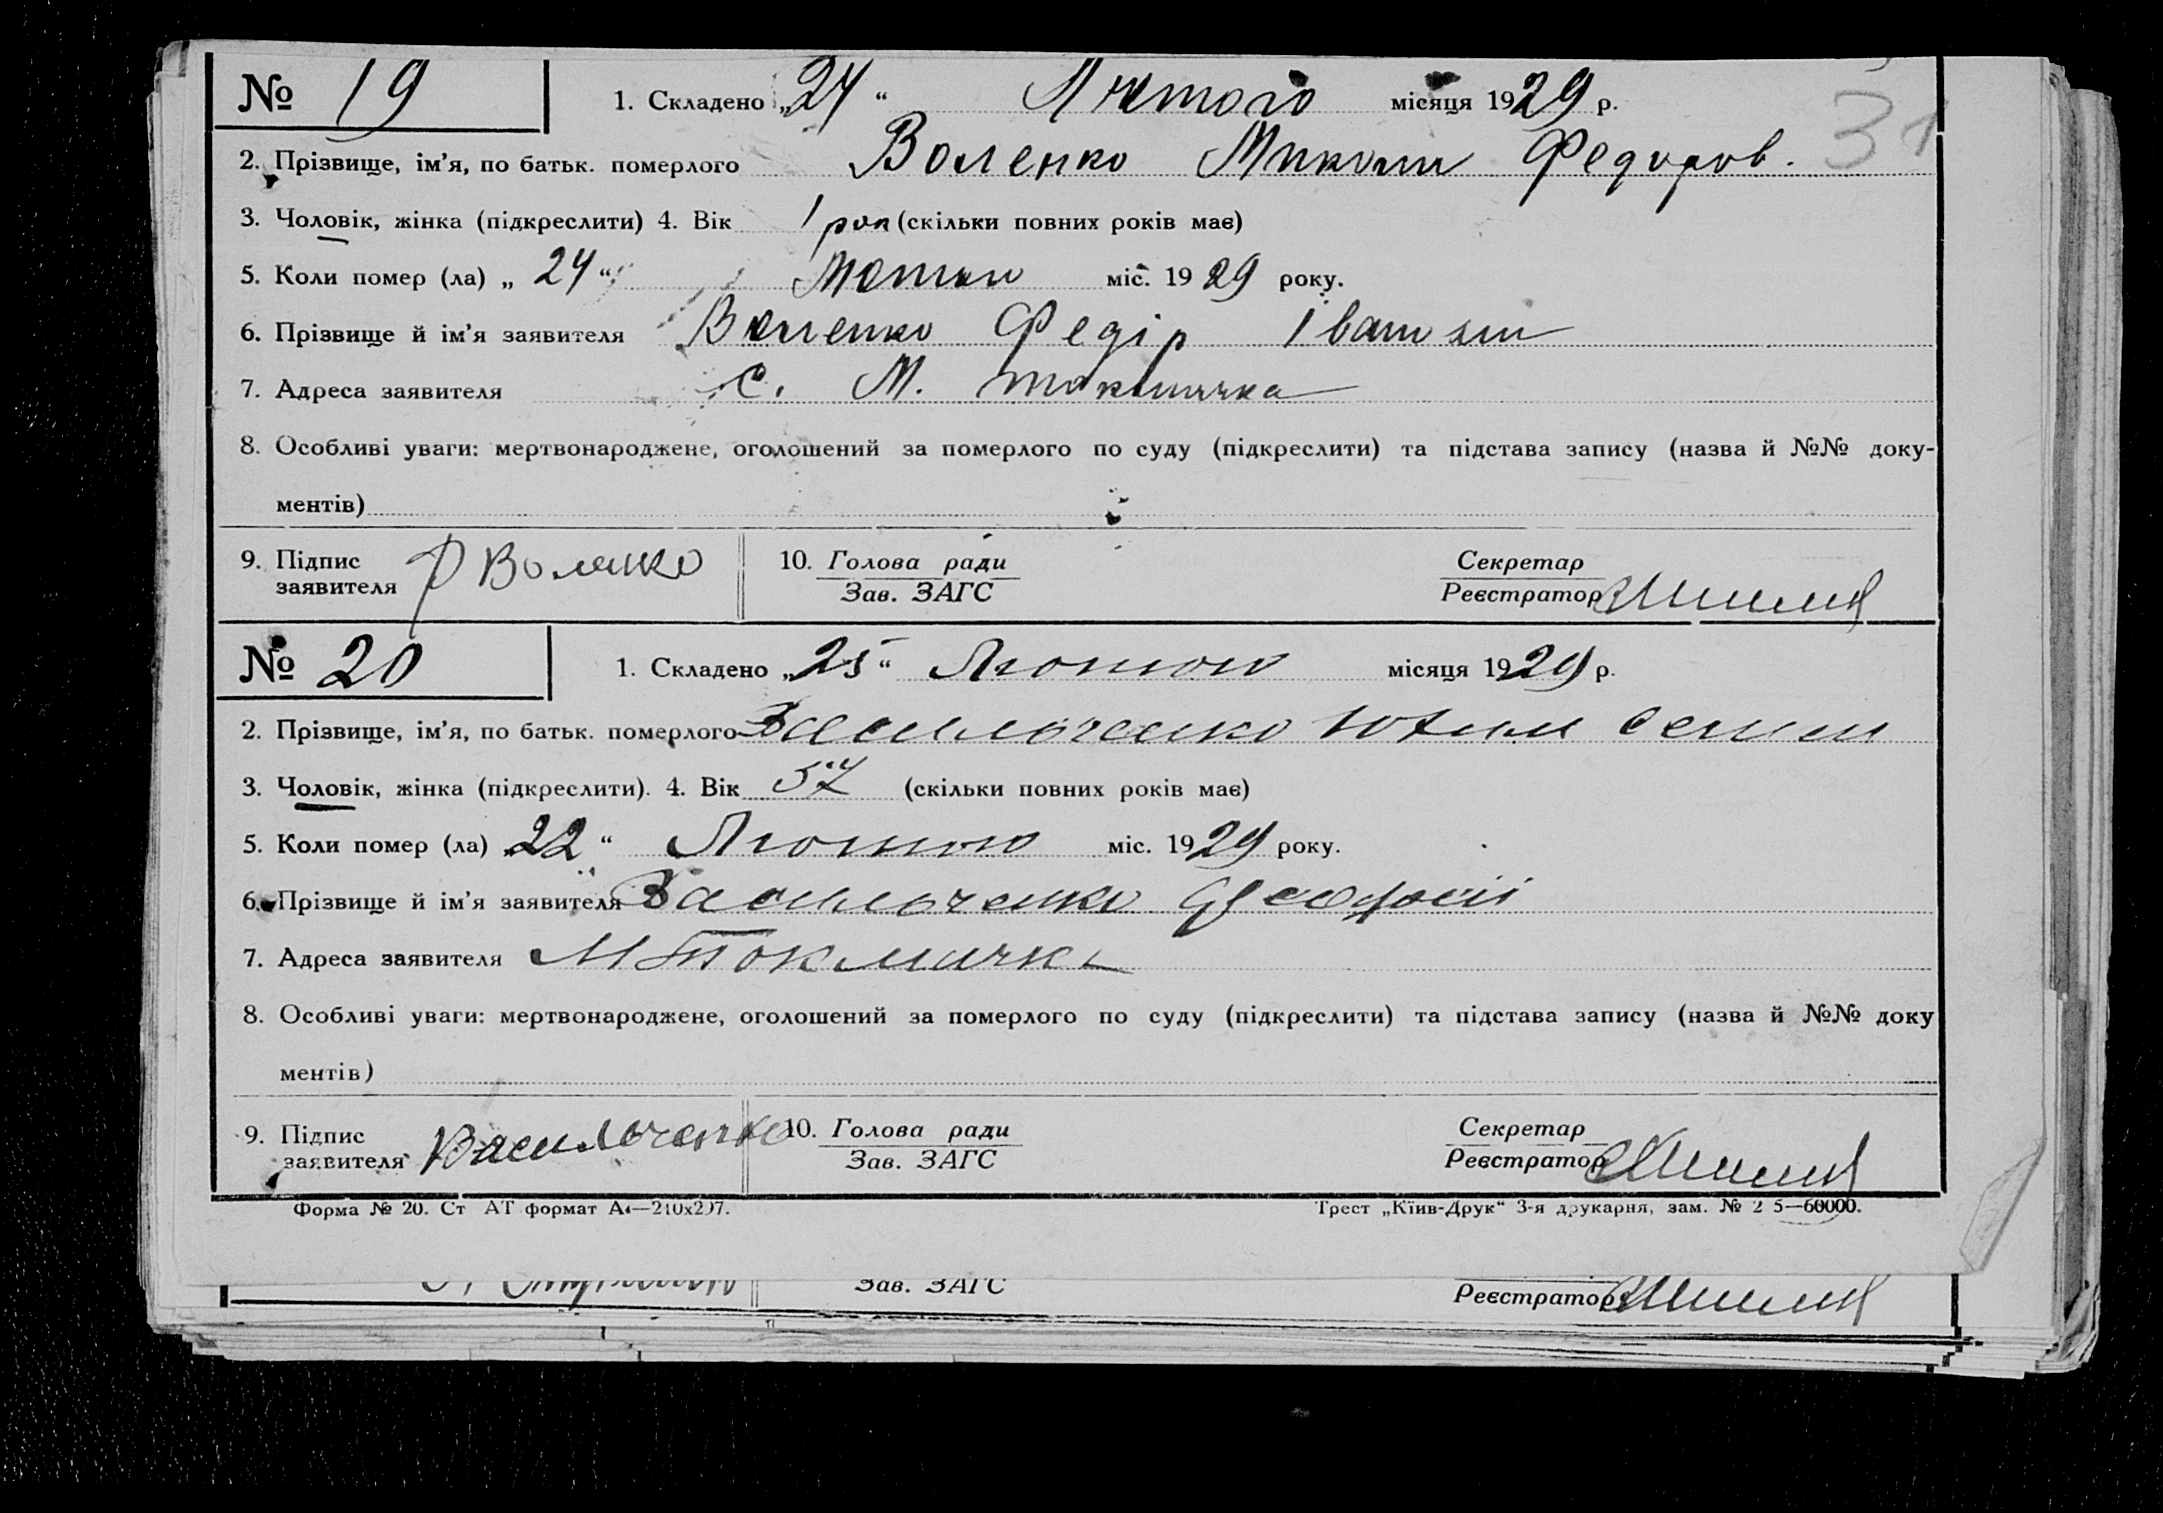 № 19 1. Складено „24“ Лютого місяця 1929 р. 31
2. Прізвище, ім'я, по батьк. померлого Воленко Микола Федоров.
3. Чоловік, жінка (підкреслити) 4. Вік 1 рок (скільки повних років має)
5. Коли помер (ла) „24“ міс. 1929 року.
6. Прізвище й ім'я заявителя Воленко Федір
7. Адреса заявителя с. М. Токмачка
8. Особливі уваги: мертвонароджене, оголошений за померлого по суду (підкреслити) та підстава запису (назва й №№ доку-
ментів)
9. Підпис Ф Воленко 10. Голова ради Секретар
заявителя Зав. ЗАГС Реєстратор
№ 20 1. Складено „25“ Лютого місяця 1929 р.
2. Прізвище, ім'я, по батьк. померлого Васильченко Юхим Семен
3. Чоловік, жінка (підкреслити). 4. Вік 57 (скільки повних років має)
5. Коли помер (ла) 22“ Лютого міс. 1929 року.
6. Прізвище й ім'я заявителя Васильченко
7. Адреса заявителя М Токмачка
8. Особливі уваги: мертвонароджене, оголошений за померлого по суду (підкреслити) та підстава запису (назва й №№ доку
ментів)
9. Підпис Васильченко 10. Голова ради Секретар
заявителя Зав. ЗАГС Реєстратор
Форма № 20. Ст АТ формат А4—210х297. Трест „Київ-Друк“ 3-я друкарня, зам. № 2 5—60000.
Зав. ЗАГС Реєстратор